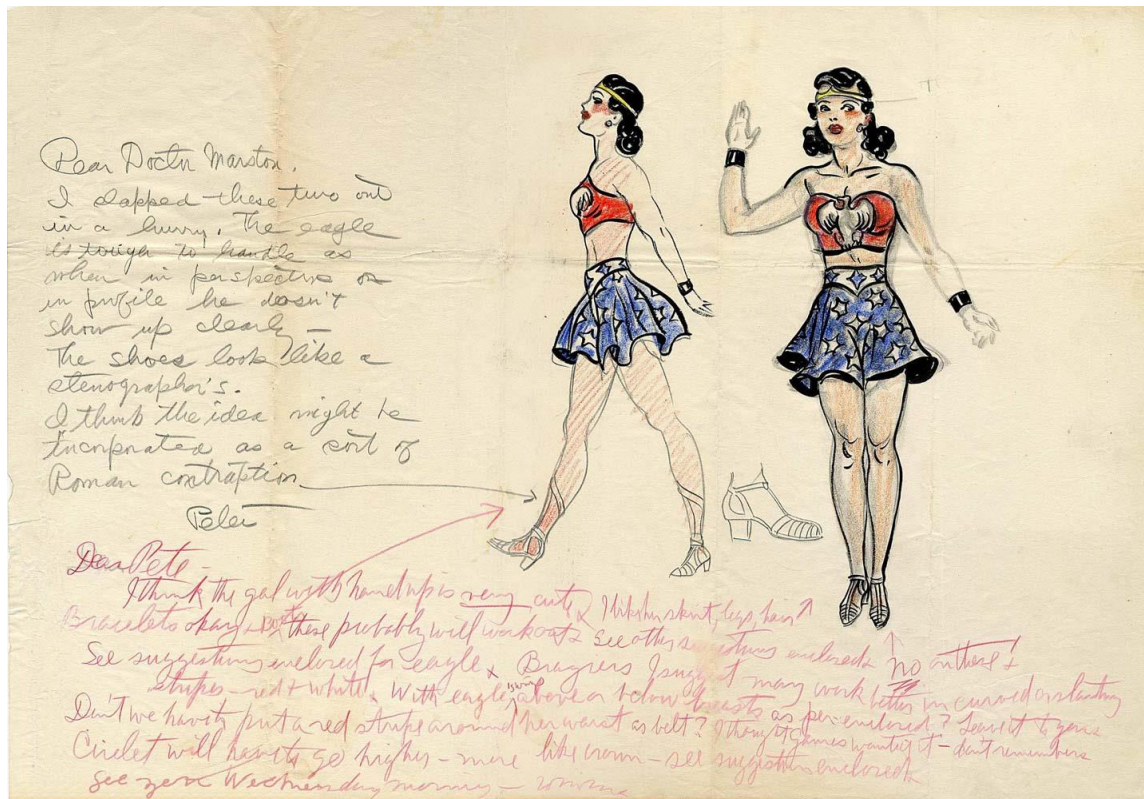 Dear Doctor Marston.
I slapped these two out
in a hurry. The eagle
is tough to handle as
when in perspective or
in profile he doesn't
show up clearly —
The shoes look like a
stenographer's.
I think the idea might be
incorporated as a sort of
Roman contraption
Peter
Dear Pete —
I think the gal with hand up is very cute & I like her skirt, legs, hair
Bracelets okay & boots these probably will work out & see other suggestions enclosed. No on these!
See suggestions enclosed for eagle & I suggest may work better in curved or slanting
stripes — red & white. With eagle's wings above or below breasts as per enclosed? Leave it to you
Don't we have to put a red stripe around her waist as belt? I thought Gaines wanted it — don't remember
Circlet will have to go higher — more like crown — see suggestion enclosed
See you Wednesday morning —